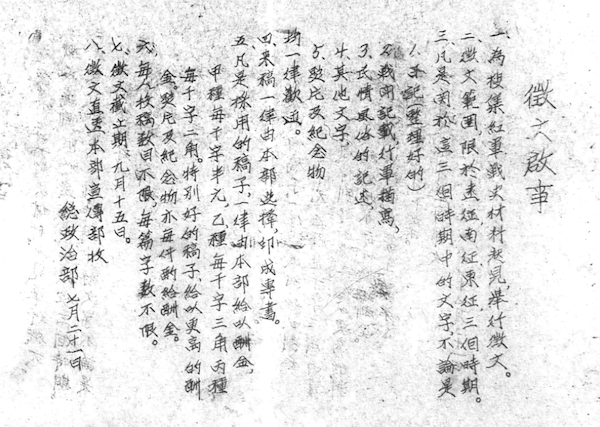 徵文啟事
一、為搜集紅軍戰史材料起見，舉行徵文。
二、徵文範圍限於直征南征東征三個時期。
三、凡是關於這三個時期中的文字，不論是
1.日記（整理好的）
2.戰鬥記載，行軍描寫，
3.民情風俗的記述，
4.其他文字，
5.照片及紀念物
均一律歡迎。
四、來稿一律由本部選擇，印成專書。
五、凡是採用的稿子，一律由本部給以酬金，
甲種每千字半元，乙種每千字三角丙種
每千字二角。特別好的稿子給以更高的酬
金。照片及紀念物亦每件酌給酬金。
六、每人投稿數目不限，每篇字數不限。
七、徵文截止期：九月十五日。
八、徵文直送本部宣傳部收
總政治部 七月二十一日